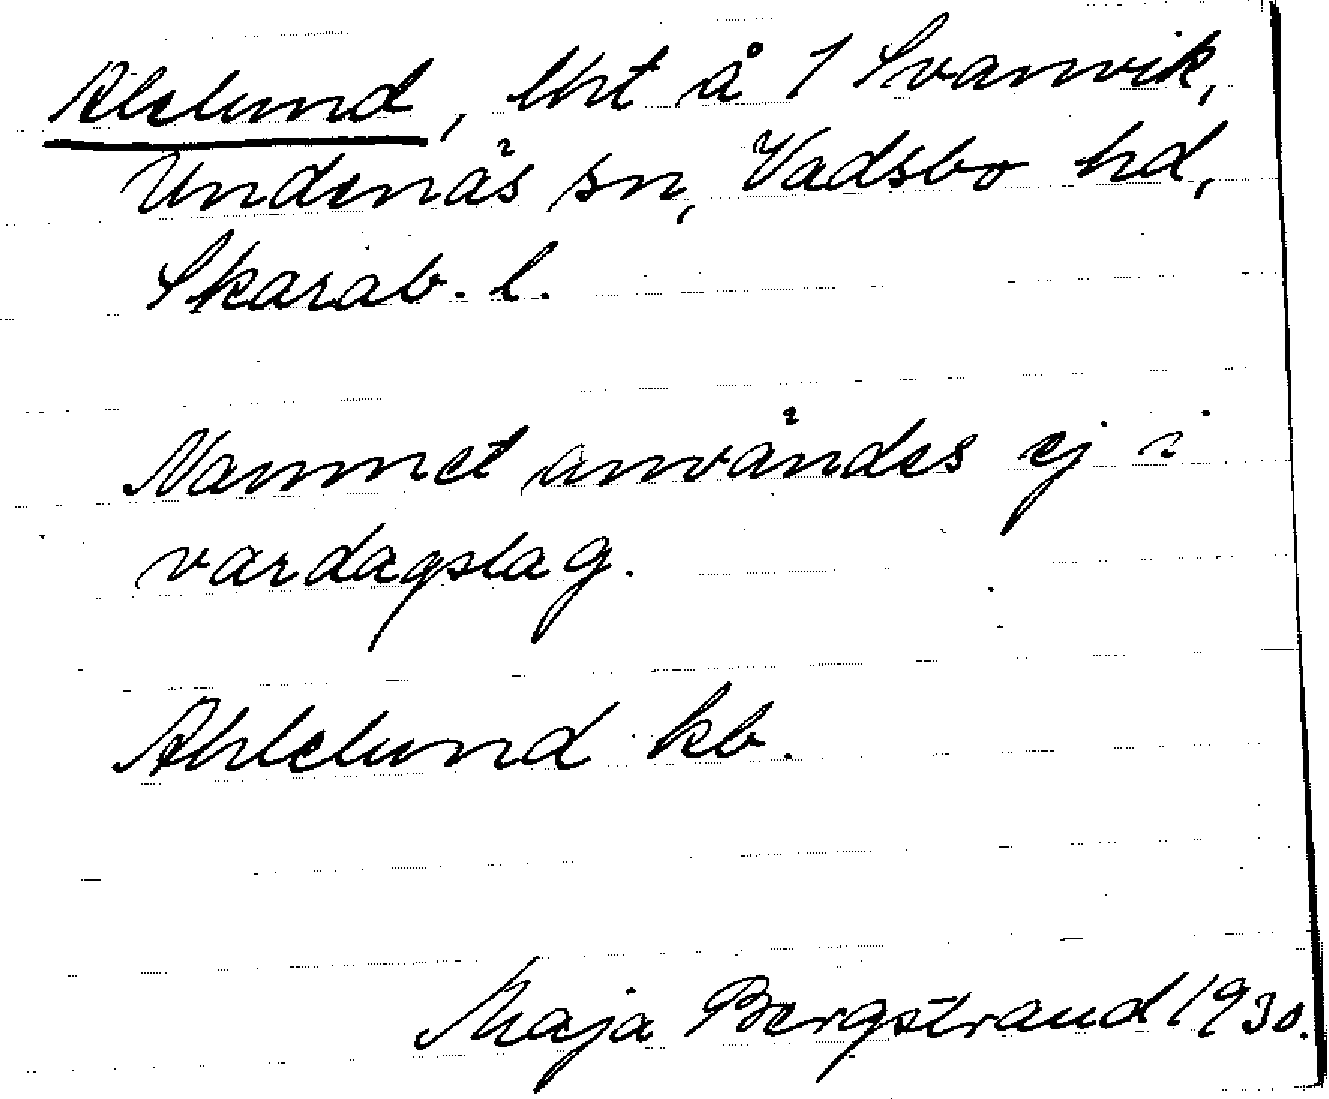 Alelund, lht å 1 Svanvik,
Undenäs sn, Vadsbo hd,
Skarab. l.
Namnet användes ej i
vardagslag.
Ahlelund kb.
Maja Bergstrand 1930.